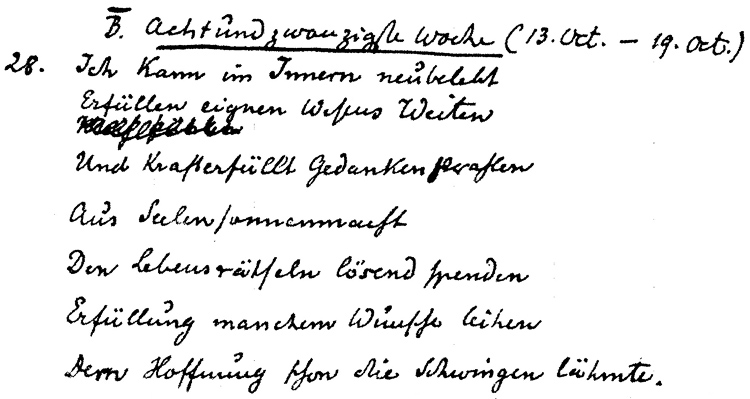 B. Achtundzwanzigste Woche (13. Oct. – 19. Oct.)
28. Ich kann im Innern neubelebt
Erfüllen eignen Wesens Weiten
Und krafterfüllt Gedankenstrahlen
Aus Seelensonnenmacht
Den Lebensrätseln lösend spenden
Erfüllung manchem Wunsche leihen
Dem Hoffnung schon die Schwingen lähmte.